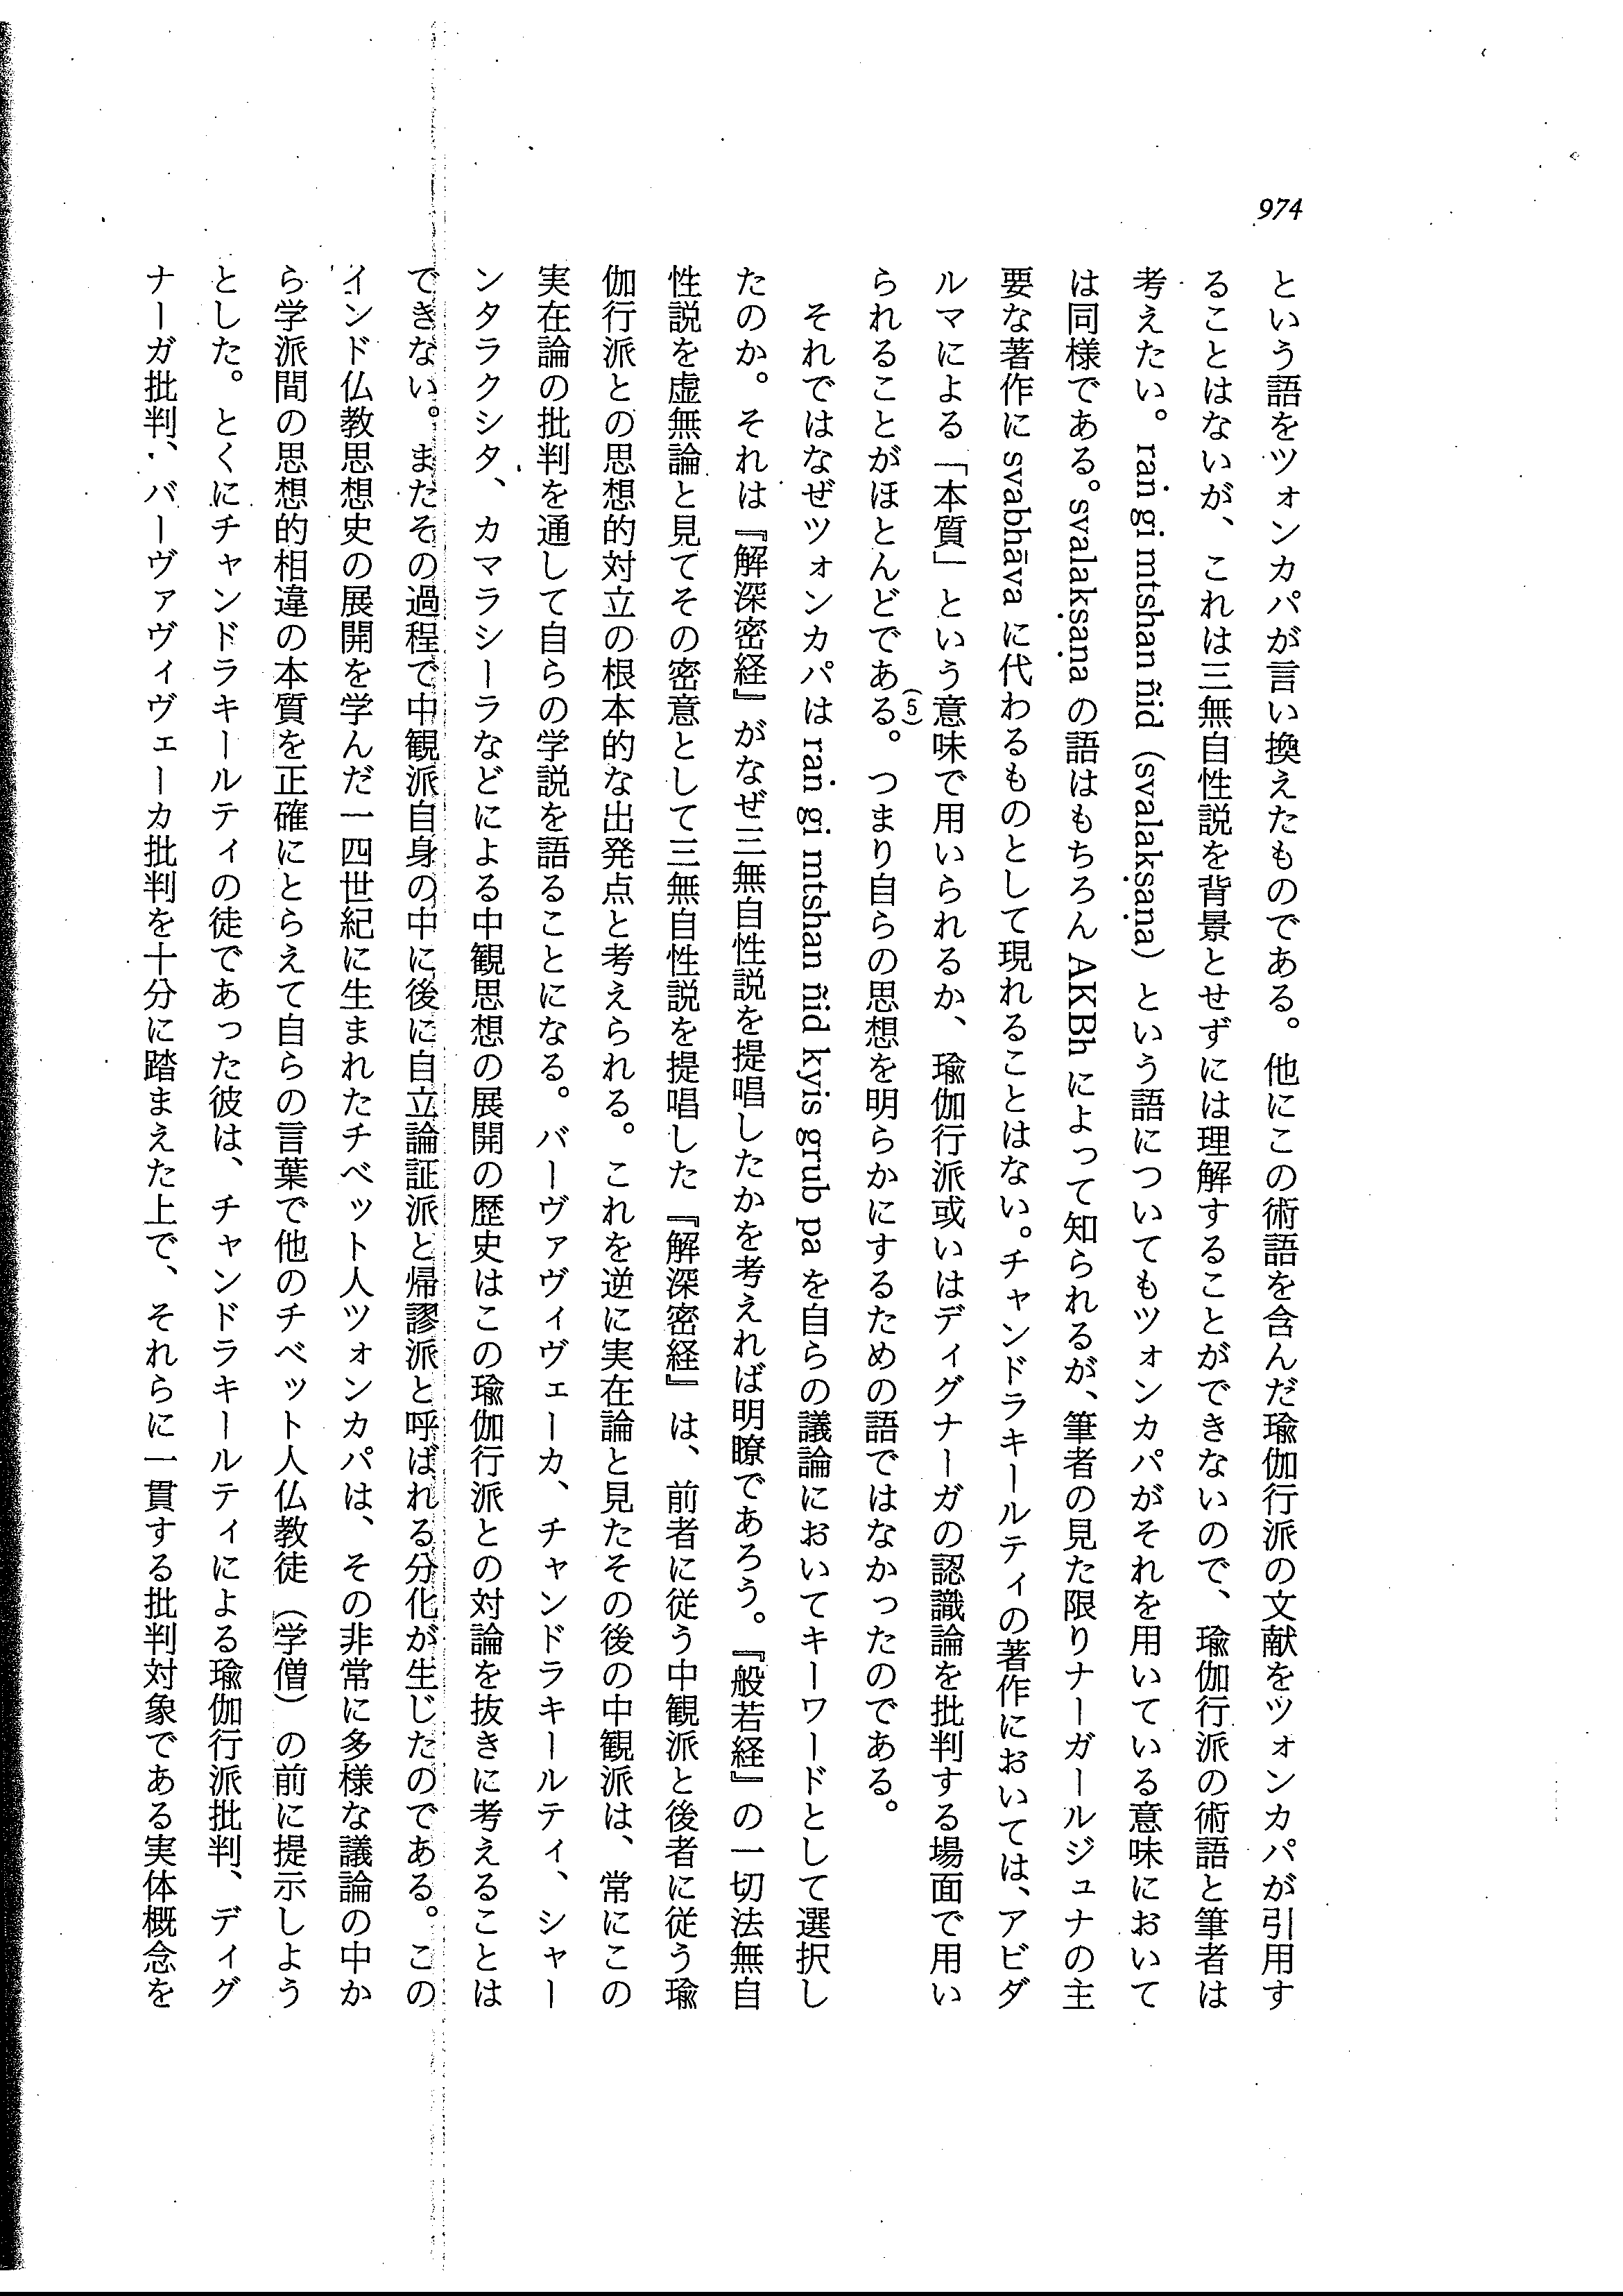 974
という語をツォンカパが言い換えたものである。他にこの術語を含んだ瑜伽行派の文献をツォンカパが引用す
ることはないが、これは三無自性説を背景とせずには理解することができないので、瑜伽行派の術語と筆者は
考えたい。raṅ gi mtshan ñid（svalakṣaṇa）という語についてもツォンカパがそれを用いている意味において
は同様である。svalakṣaṇa の語はもちろん AKBh によって知られるが、筆者の見た限りナーガールジュナの主
要な著作に svabhāva に代わるものとして現れることはない。チャンドラキールティの著作においては、アビダ
ルマによる「本質」という意味で用いられるか、瑜伽行派或いはディグナーガの認識論を批判する場面で用い
られることがほとんどである(5)。つまり自らの思想を明らかにするための語ではなかったのである。
それではなぜツォンカパは raṅ gi mtshan ñid kyis grub pa を自らの議論においてキーワードとして選択し
たのか。それは『解深密経』がなぜ三無自性説を提唱したかを考えれば明瞭であろう。『般若経』の一切法無自
性説を虚無論と見てその密意として三無自性説を提唱した『解深密経』は、前者に従う中観派と後者に従う瑜
伽行派との思想的対立の根本的な出発点と考えられる。これを逆に実在論と見たその後の中観派は、常にこの
実在論の批判を通して自らの学説を語ることになる。バーヴァヴィヴェーカ、チャンドラキールティ、シャー
ンタラクシタ、カマラシーラなどによる中観思想の展開の歴史はこの瑜伽行派との対論を抜きに考えることは
できない。またその過程で中観派自身の中に後に自立論証派と帰謬派と呼ばれる分化が生じたのである。この
インド仏教思想史の展開を学んだ一四世紀に生まれたチベット人ツォンカパは、その非常に多様な議論の中か
ら学派間の思想的相違の本質を正確にとらえて自らの言葉で他のチベット人仏教徒（学僧）の前に提示しよう
とした。とくにチャンドラキールティの徒であった彼は、チャンドラキールティによる瑜伽行派批判、ディグ
ナーガ批判、バーヴァヴィヴェーカ批判を十分に踏まえた上で、それらに一貫する批判対象である実体概念を